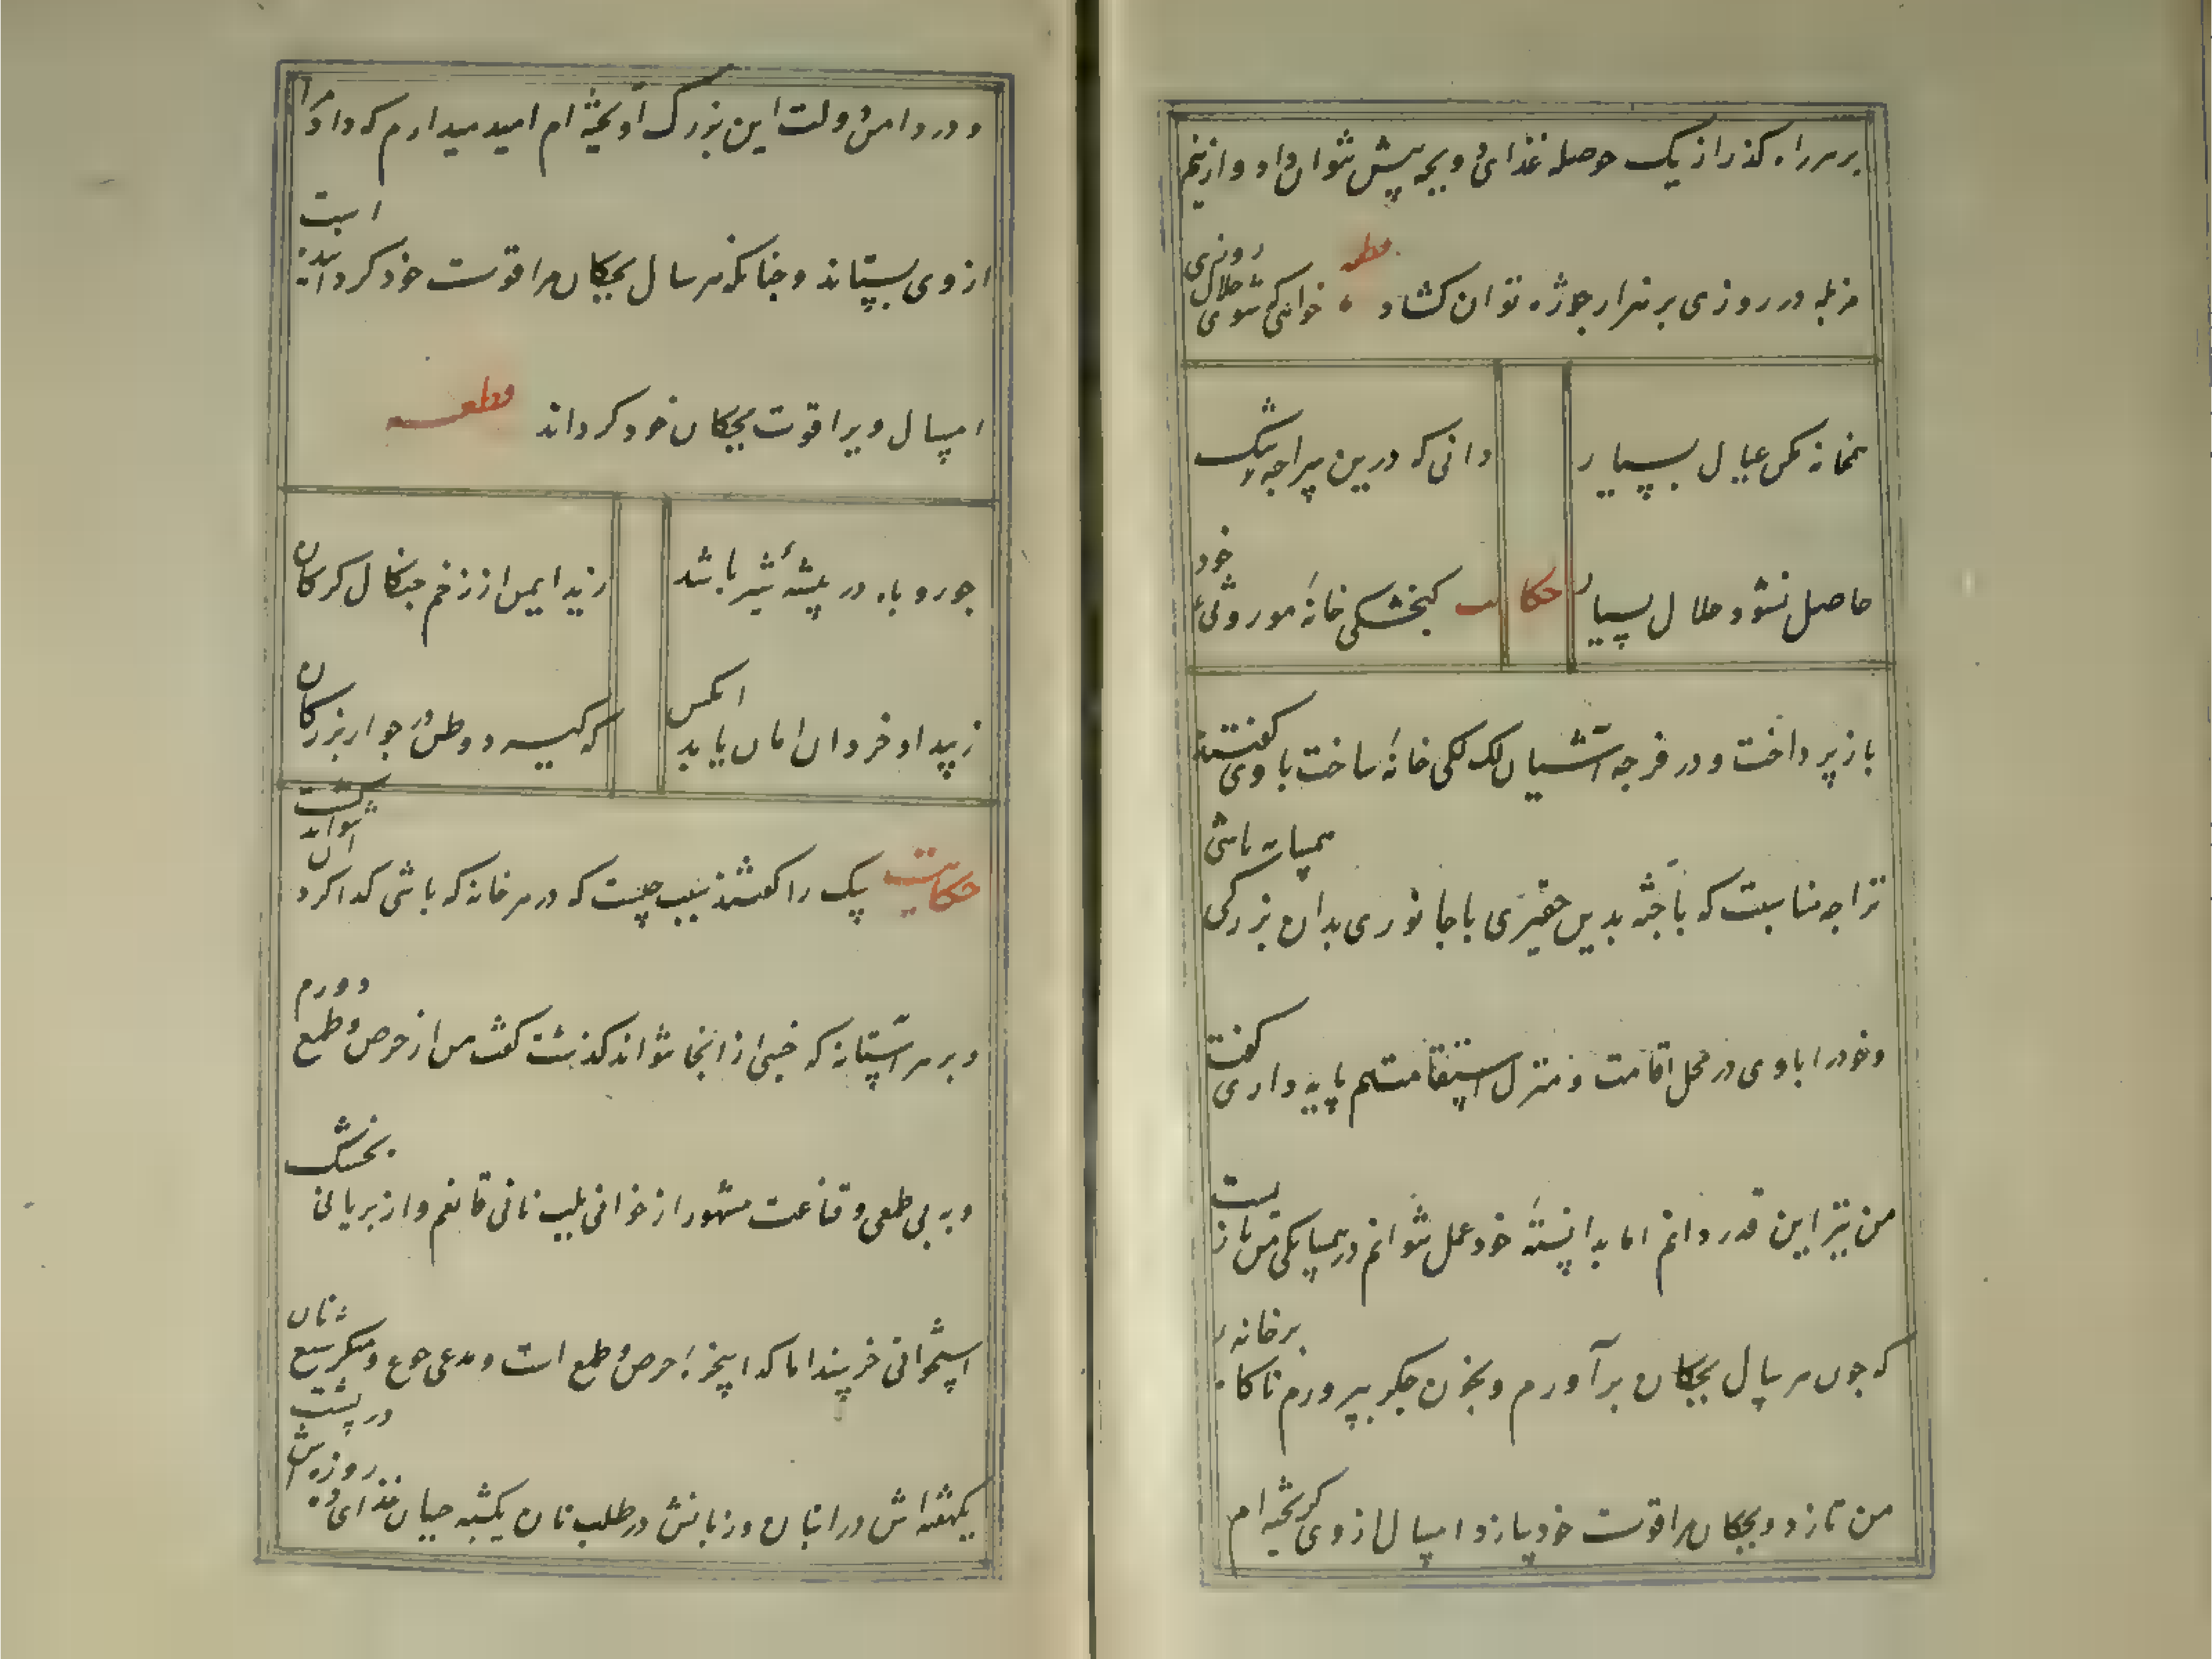 بر سر راه گذر از یک حوصله غذای دو بچه پیش نتوان داد و از نیم
مزبله در روزی بر هزار جوژه نتوان کشاد قطعه خواهی که شوی حلال روزی
همخانه مکن عیال بسیار
دانی که درین سراچه تنگ
حاصل نشود حلال بسیار
حکایت کنجشکی خانه موروثی خود
باز پرداخت و در فرجه آشیان لک لکی خانه ساخت با وی گفتند
ترا چه مناسبت که با جثه بدین حقیری با جانوری بدان بزرگی همسایه باشی
و خود را با وی در محل اقامت و منزل استقامت هم پایه داری گفت
من نیز این قدر دانم اما بدانسته خود عمل نتوانم در همسایگی من ماریست
که چون هر سال بچگان برآورم و بخون جگر بپرورم ناگاه بر خانه
من تازد و بچگان مرا قوت خود سازد امسال از وی گریخته ام
و در دامن دولت این بزرگ آویخته ام امید میدارم که داد مرا
از وی بستاند و چنانکه هر سال بچگان مرا قوت خود گردانیده است
امسال ویرا قوت بچگان خود گرداند قطعه
چو روباه در بیشه شیر باشد
زید ایمن از زخم چنگال گرگان
ز بیداد خردان امان یابد آنکس
که گیرد وطن در جوار بزرگان
حکایت سگ را گفتند سبب چیست که در هر خانه که باشی گدا گرد آن نتواند گشت
و بر هر آستانه که خسبی از آنجا نتواند گذشت گفت من از حرص و طمع دورم
و به بی طمعی و قناعت مشهور از خوانی بلب نانی قانعم و از بریانی بخشک
استخوانی خرسند اما گدا سخره حرص و طمع است و مدعی جوع و منکر شبع نان
یکهفته اش در انبان و زبانش در طلب نان یکشبه جنبان غذای ده روزه اش در پشت